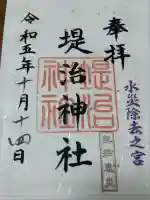 奉拝
水災除去之宮
堤治神社
令和五年十月十四日